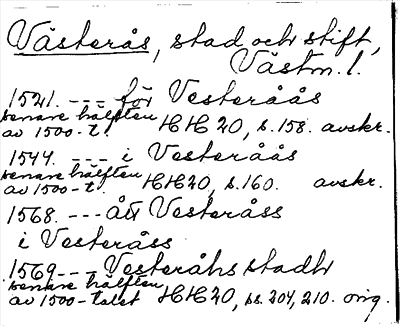 Västerås, stad och stift,
Västm. l.
1521. --- för Vesteräås
senare hälften
av 1500-t. HH 20, s. 158. avskr.
1544. --- i Vesteräås
senare hälften
av 1500-t. HH 20, s. 160. avskr.
1568. --- ått Vesteråss
i Vesteråss
1569 -- Vesteråhs stadh
senare hälften
av 1500-talet HH 20, ss. 204, 210. orig.